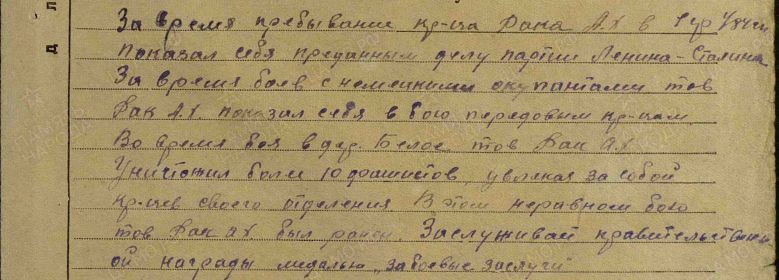 За время пребывание кр-ца Фака А.Х в 1 ур
показал себя преданным делу партии Ленина-Сталина
За время боев с немецкими окупантами тов
Фак А.Х. показал себя в бою передовым кр-цем.
Во время боя в дер. Белое тов Фак АХ
Уничтожил более 10 фашистов, увлекая за собой
кр-цев своего отделения В этом неравном бою
тов Фак АХ был ранен. Заслуживает правительственн
ой награды медалью „За боевые заслуги"